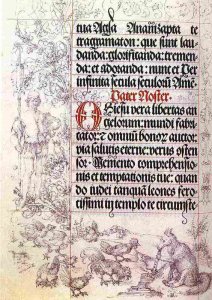 tua Agla Anamzapta te
tragramaton: que sunt lau
danda: glorificanda: tremen
da: et adoranda: nunc et per
infinita secula seculorũ Amẽ
Pater Noster.
O Hiesu vera libertas an
gelorum: mundi fabri
cator: et omniũ bonorũ auctor:
via salutis eterne: verus osten
sor. Memento comprehensio
nis et temptationis tue: quan
do iudei tanquã leones fero
cissimi in templo te circumste